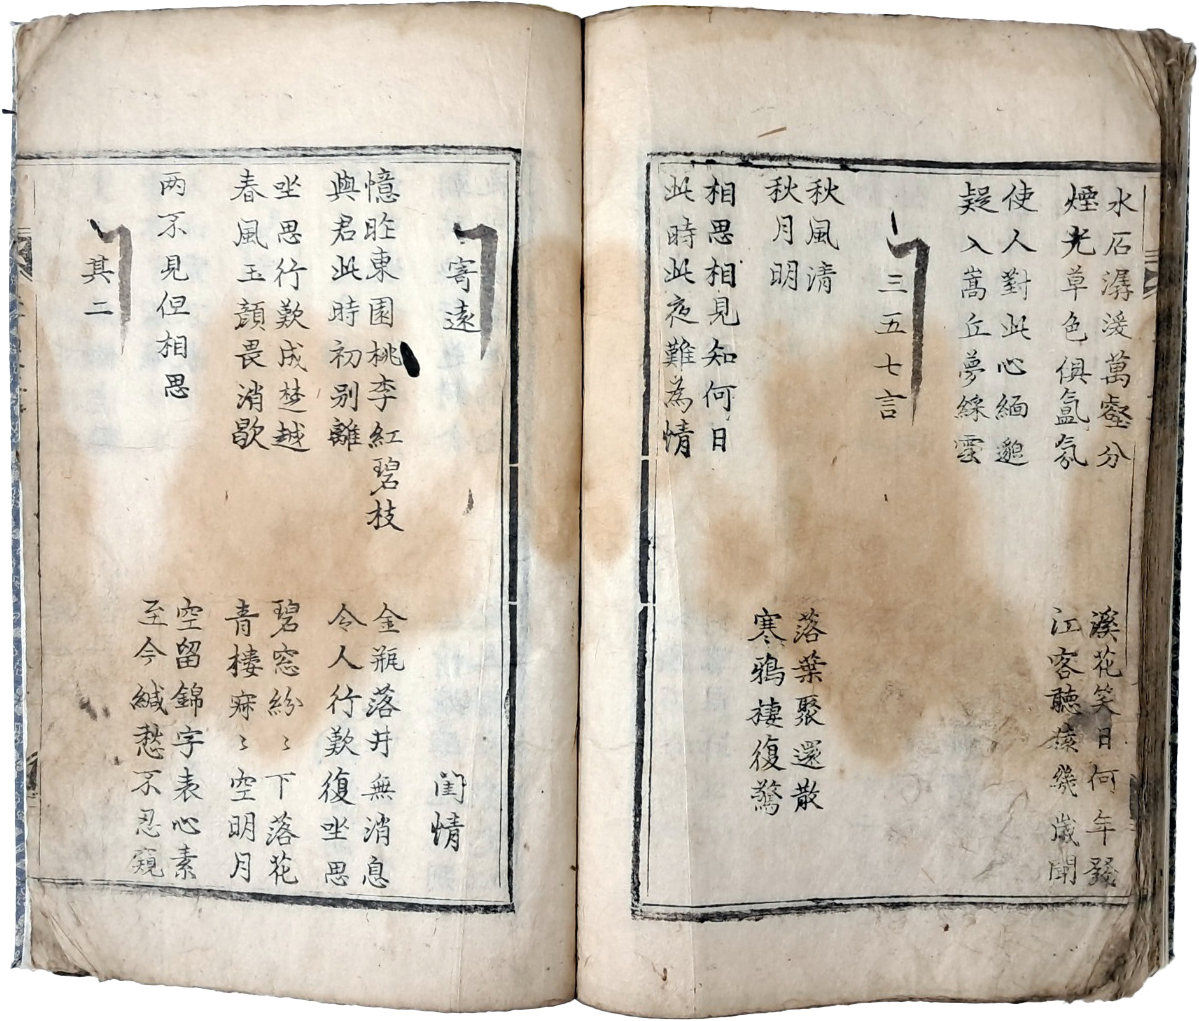 水石潺湲萬壑分 溪花笑日何年發
煙光草色俱氳氛 江客聽猿幾歲聞
使人對此心緬邈
疑入嵩丘夢綵雲
三五七言
秋風清 落葉聚還散
秋月明 寒鴉棲復驚
相思相見知何日
此時此夜難為情
寄遠 閨情
憶昨東園桃李紅碧枝 金瓶落井無消息
與君此時初别離 令人行歎復坐思
坐思行歎成楚越 碧窓紛〻下落花
春風玉顔畏消歇 青樓寂〻空明月
两不見但相思 空留錦字表心素
至今緘愁不忍窺
其二